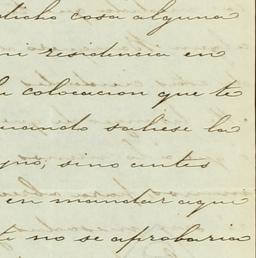 dicho cosa alguna
mi residencia en
la colocacion que te
cuando saliese la
sino antes
en mandar aqui
no se aprobaria